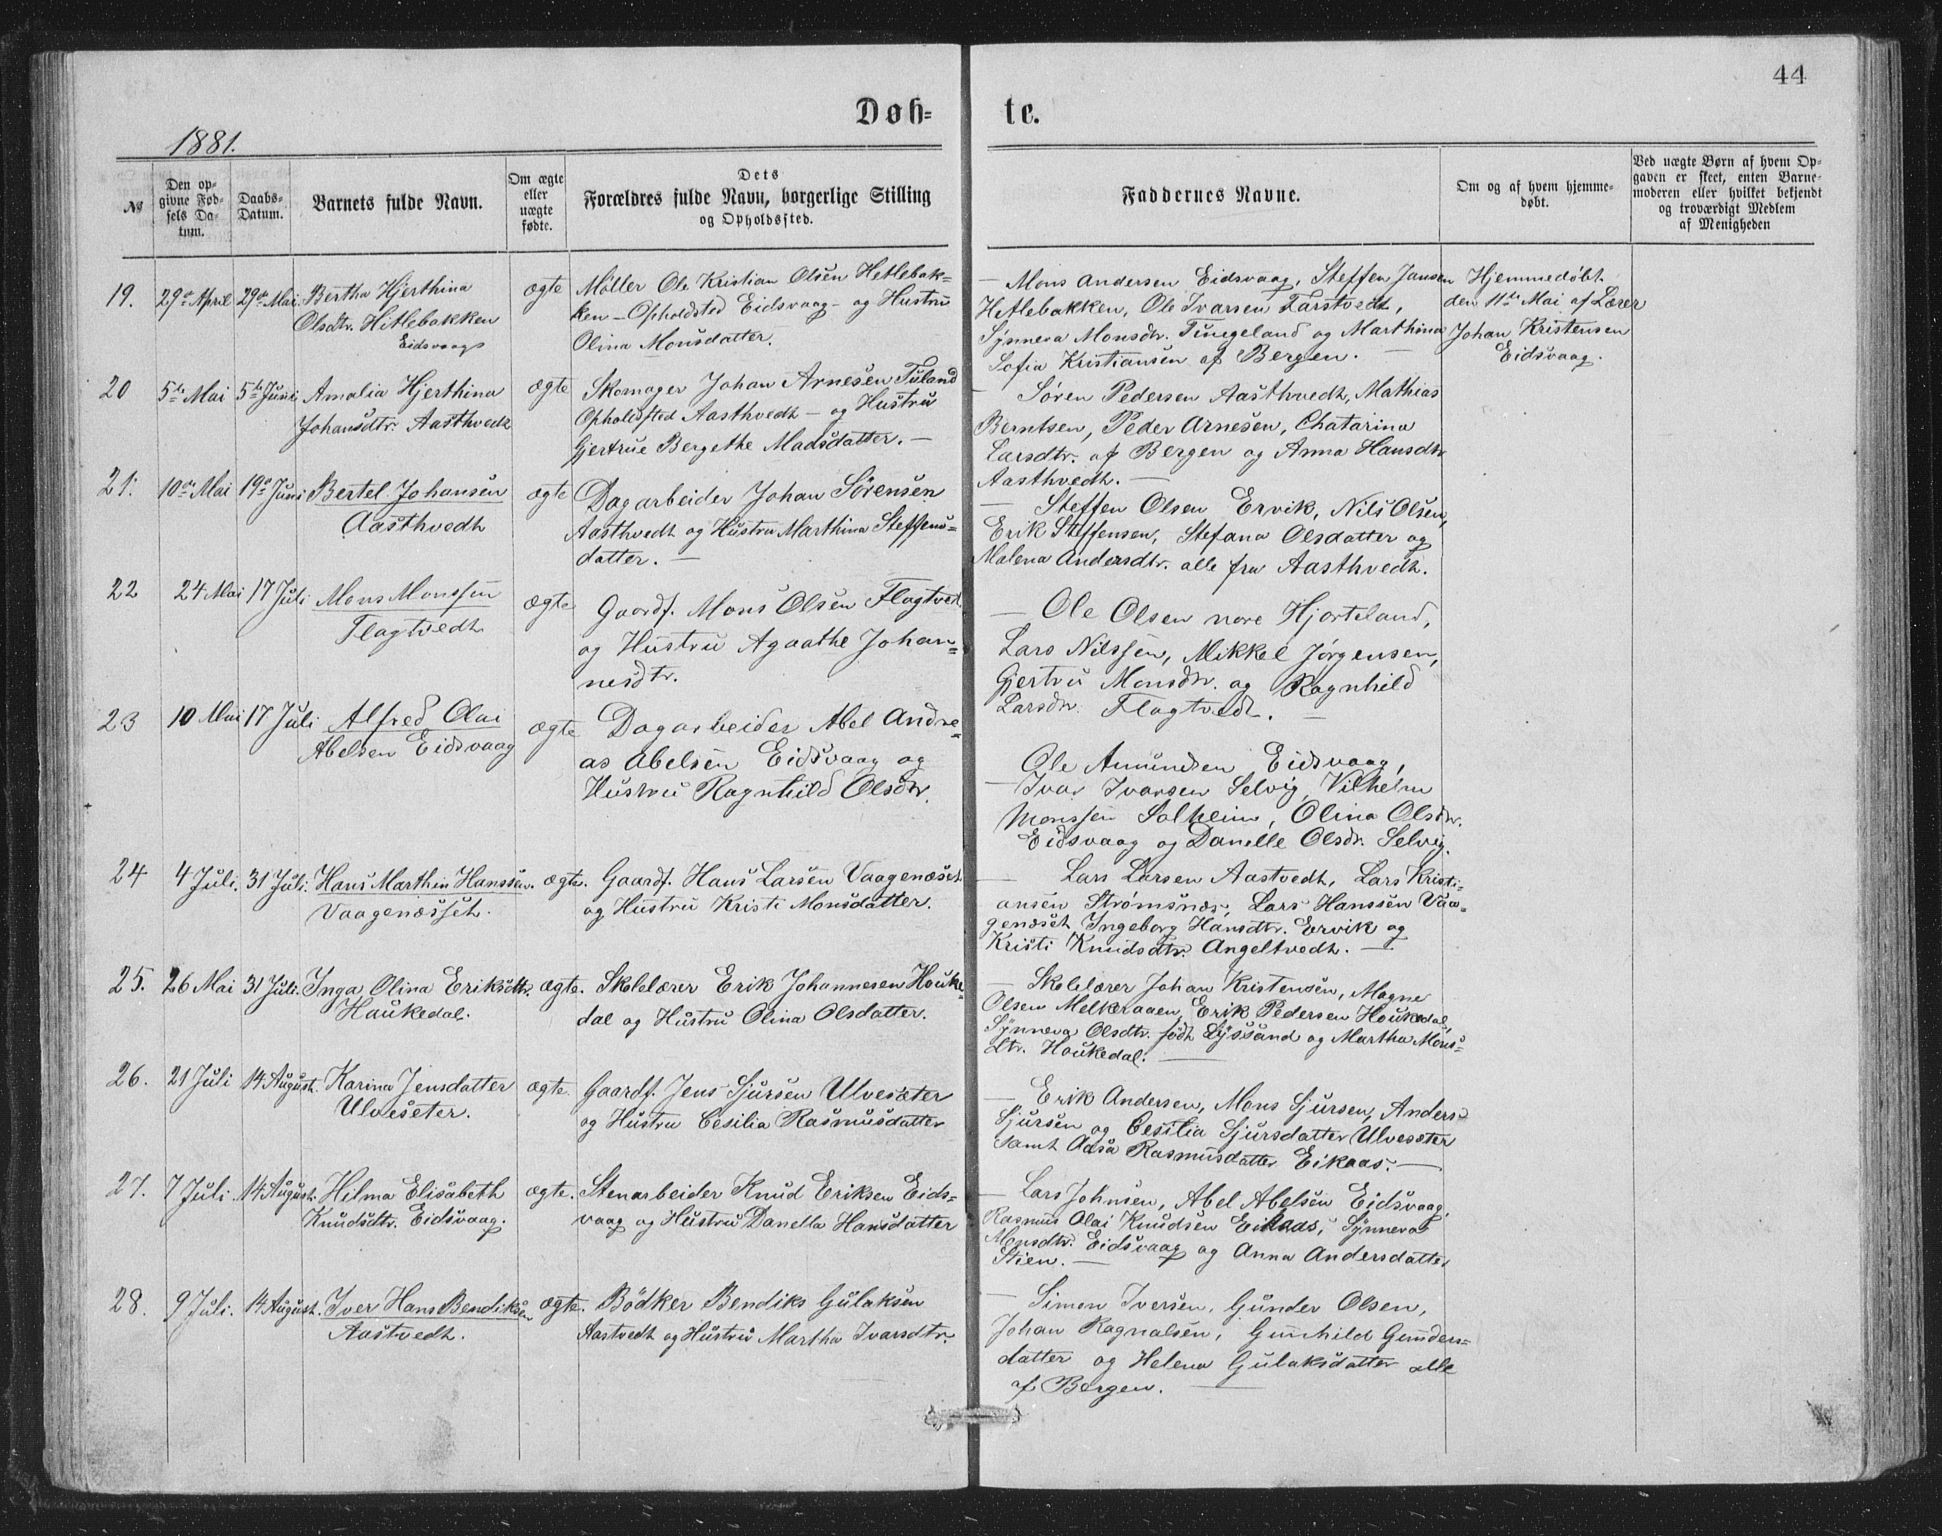 44
Døb= te.
1881.
№
Den op-
givne Fød-
sels Da-
tum.
Daabs-
Datum.
Barnets fulde Navn.
Om ægte
eller
nægte
fødte.
Dets
Forældres fulde Navn, borgerlige Stilling
og Opholdssted.
Faddernes Navne.
Om og af hvem hjemme-
døbt.
Ved nægte Børn af hvem Op-
gaven er skeet, enten Barne-
moderen eller hvilket bekjendt
og troværdigt Medlem
af Menigheden
19. 29de April 29de Mai Bertha Hjerthina
Olsdtr. Hetlebakken
Eidsvaag
ægte
Møller Ole Kristian Olsen Hetlebak=
ken – Opholdsted Eidsvaag – og Hustru
Olina Monsdatter.
– Mons Andersen Eidsvaag, Steffen Jansen
Hetlebakken, Ole Ivarsen Tarstvedt,
Synneva Monsdtr. Tingeland og Marthina
Sofia Kristiansen af Bergen. –
Hjemmedøbt
den 11te Mai af Lærer
Johan Kristensen
Eidsvaag.
20 5te Mai 5te Juni Amalia Hjerthina
Johansdtr. Aasthvedt
ægte
Skomager Johan Arnesen Tuland
Opholdsted Aasthvedt – og Hustru
Gjertrue Bergethe Madsdatter. –
– Søren Pedersen Aasthvedt, Mathias
Berntsen, Peder Arnesen, Chatarina
Larsdtr. af Bergen og Anna Hansdtr
Aasthvedt. –
21. 10de Mai 19de Juni Bertel Johansen
Aasthvedt
ægte
Dagarbeider Johan Sørensen
Aasthvedt og Hustru Marthina Steffens=
datter. –
– Steffen Olsen Ervik, Nils Olsen,
Erik Steffensen, Stefana Olsdatter og
Malena Andersdtr. alle fra Aasthvedt.
22 24 Mai 17 Juli Mons Monssen
Flagtvedt
ægte
Gaardf. Mons Olsen Flagtved
og Hustru Agaathe Johan=
nesdtr.
– Ole Olsen nore Hjorteland,
Lars Nilssen, Mikkel Jørgensen,
Gjertru Monsdtr. og Ragnhild
Larsdtr. Flagtvedt. –
23 10 Mai 17 Juli Alfred Olai
Abelsen Eidsvaag
ægte
Dagarbeider Abel Andre=
as Abelsen Eidsvaag og
Hustru Ragnhild Olsdtr.
Ole Amundsen Eidsvaag,
– Ivar Ivarsen Selvig, Vilhelm
Monssen Solheim, Olina Olsdtr.
Eidsvaag og Danelle Olsdr. Selvig.
24 4 Juli. 31 Juli. Hans Marthin Hanssen.
Vaagenæsset.
ægte.
Gaardf. Hans Larsen Vaagenæset
og Hustru Kristi Monsdatter.
– Lars Larsen Aastvedt, Lars Kristi=
ansen Strømsnæs, Lars Hanssen Vaa=
genæset Ingeborg Hansdtr. Ervik og
Kristi Knudsdtr. Angeltvedt. –
25. 26 Mai 31 Juli. Inga Olina Eriksdtr.
Haukedal.
ægte.
Skolelærer Erik Johannesen Houke=
dal og Hustru Olina Olsdatter.
– Skolelærer Johan Kristensen, Magne
Olsen Melkeraaen, Erik Pedersen Houkedal,
Synneva Olsdtr. født Lyssand og Martha Mons=
dtr. Houkedal. –
26. 21 Juli 14 August. Karina Jensdatter
Ulveseter.
ægte.
Gaardf. Jens Sjursen Ulvesæter
og Hustru Cesilia Rasmusdatter
– Erik Andersen, Mons Sjursen, Anders
Sjursen og Cesilia Sjursdatter Ulvesæter
samt Aasa Rasmusdatter Eikaas. –
27. 7 Juli 14 August. Hilma Elisabeth
Knudsdtr. Eidsvaag.
ægte.
Stenarbeider Knud Eriksen Eids=
vaag og Hustru Danella Hansdatter
– Lars Johnsen, Abel Abelsen Eidsvaag,
Rasmus Olai Knudsen Eikaas, Synneva
Monsdtr. Eidsvaag og Anna Andersdatter
Stien. –
28. 9 Juli. 14 August. Iver Hans Bendiksen
Aastvedt.
ægte.
Bødker Bendiks Gulaksen
Aastvedt og Hustru Martha Ivarsdtr.
– Simon Iversen, Gunder Olsen,
Johan Ragnalsen, Gunhild Gunders=
datter og Helena Gulaksdatter alle
af Bergen. –